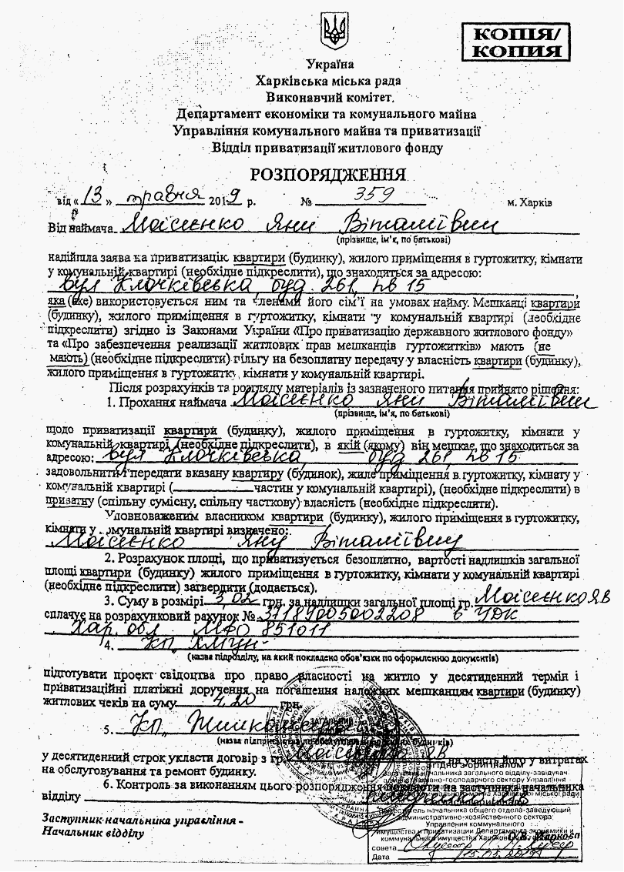 КОПІЯ/
КОПИЯ
Україна
Харківська міська рада
Виконавчий комітет.
Департамент економіки та комунального майна
Управління комунального майна та приватизації
Відділ приватизації житлового фонду
РОЗПОРЯДЖЕННЯ
від « 13 » травня 2019 р. № 359 м. Харків
Від наймача Моісеєнко Яни Віталіївни
(прізвище, ім’я, по батькові)
надійшла заява на приватизацію квартири (будинку), жилого приміщення в гуртожитку, кімнати
у комунальній квартирі (необхідне підкреслити), що знаходиться за адресою:
вул Клочківська, буд. 261, кв 15
яка (яке) використовується ним та членами його сім’ї на умовах найму. Мешканці квартири
(будинку), жилого приміщення в гуртожитку, кімнати у комунальній квартирі (необхідне
підкреслити) згідно із Законами України «Про приватизацію державного житлового фонду»
та «Про забезпечення реалізації житлових прав мешканців гуртожитків» мають (не
мають) (необхідне підкреслити) пільгу на безоплатну передачу у власність квартири (будинку),
жилого приміщення в гуртожитку, кімнати у комунальній квартирі.
Після розрахунків та розгляду матеріалів із зазначеного питання прийнято рішення:
1. Прохання наймача Моісеєнко Яни Віталіївни
(прізвище, ім’я, по батькові)
щодо приватизації квартири (будинку), жилого приміщення в гуртожитку, кімнати у
комунальній квартирі (необхідне підкреслити), в якій (якому) він мешкає, що знаходиться за
адресою: вул Клочківська буд 261, кв 15
задовольнити і передати вказану квартиру (будинок), жиле приміщення в гуртожитку, кімнату у
комунальній квартирі ( частин у комунальній квартирі), (необхідне підкреслити) в
приватну (спільну сумісну, спільну часткову) власність (необхідне підкреслити).
Уповноваженим власником квартири (будинку), жилого приміщення в гуртожитку,
кімнати у комунальній квартирі визначено:
Моісеєнко Яну Віталіївну
2. Розрахунок площі, що приватизується безоплатно, вартості надлишків загальної
площі квартири (будинку) жилого приміщення в гуртожитку, кімнати у комунальній квартирі
(необхідне підкреслити) затвердити (додається).
3. Суму в розмірі 3,02 грн. за надлишки загальної площі гр. Моісеєнко ЯВ
сплачує на розрахунковий рахунок № 37189005002208 в УДК
Хар. обл МФО 851011
4. КП
(назва підрозділу, на який покладено обов’язки по оформленню документів)
підготувати проект свідоцтва про право власності на житло у десятиденний термін і
приватизаційні платіжні доручення на погашення належних мешканцям квартири (будинку)
житлових чеків на суму 4,20 грн.
5. КП
(назва підприємства по обслуговуванню будинків)
у десятиденний строк укласти договір з гр. Моісеєнко на участь його у витратах
на обслуговування та ремонт будинку.
6. Контроль за виконанням цього розпорядження покласти на заступника начальника
відділу
Заступник начальника управління -
Начальник відділу